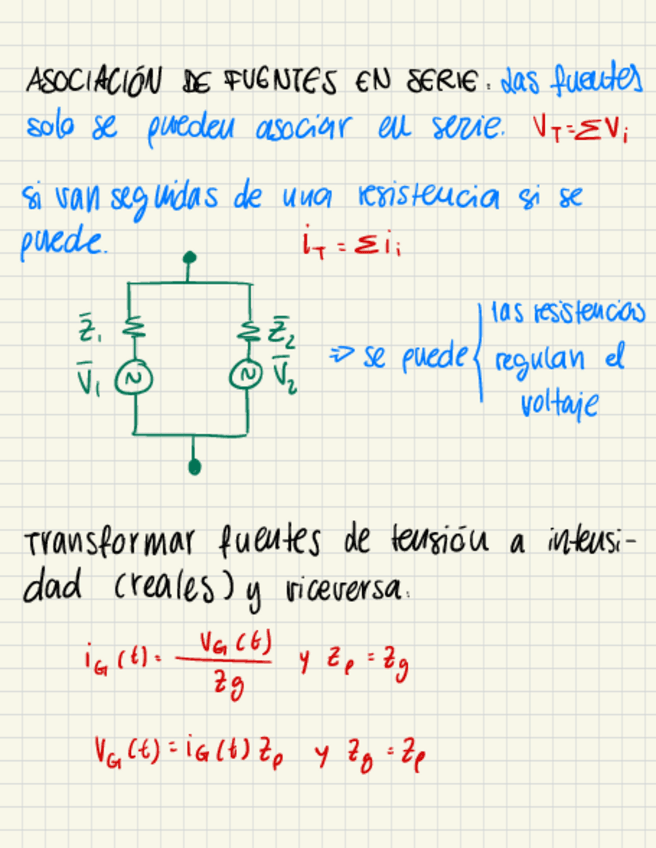 ASOCIACIÓN DE FUENTES EN SERIE. Las fuentes
solo se pueden asociar en serie. V_T = ΣV_i
si van seguidas de una resistencia si se
puede. i_T = Σi_i
Z̄_1 Z̄_2
V̄_1 V̄_2
⇒ se puede { las resistencias
regulan el
voltaje
Transformar fuentes de tensión a intensi-
dad (reales) y viceversa.
i_G(t) = V_G(t) / Z_g y Z_p = Z_g
V_G(t) = i_G(t) Z_p y Z_g = Z_p